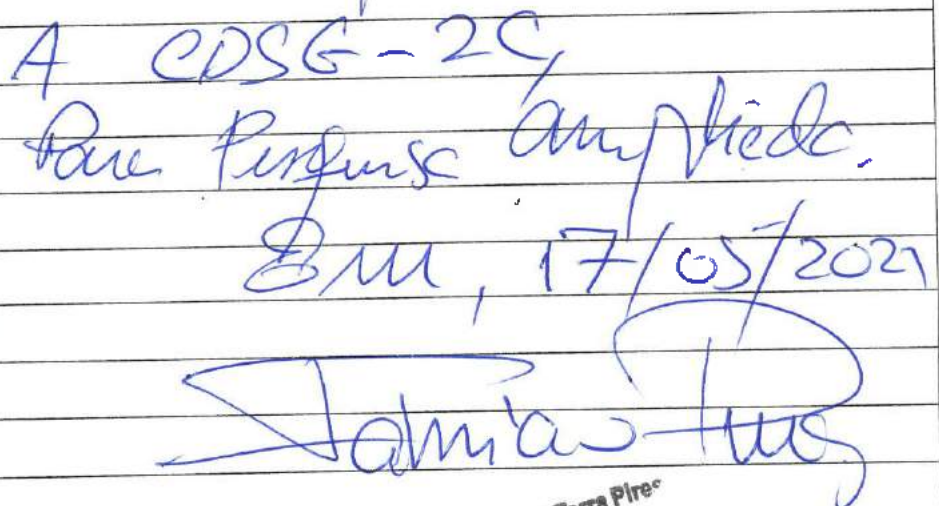 A CDSG-2C,
Para Pesquisa Ampliada.
Em, 17/05/2021
Damião Pires
Pires